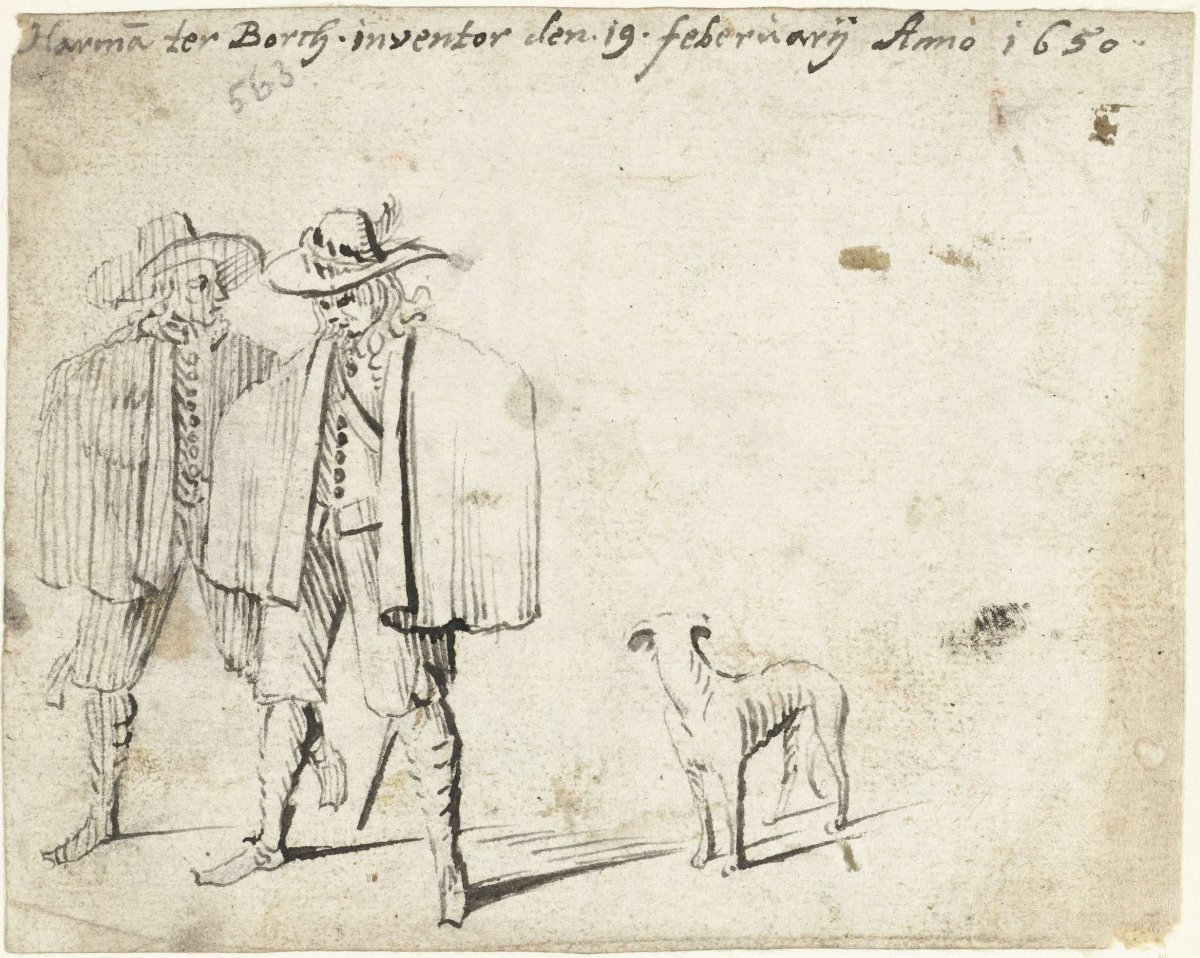 Harmã ter Borch · inventor den · 19 · feberuarÿ Anno 1650 ·
563